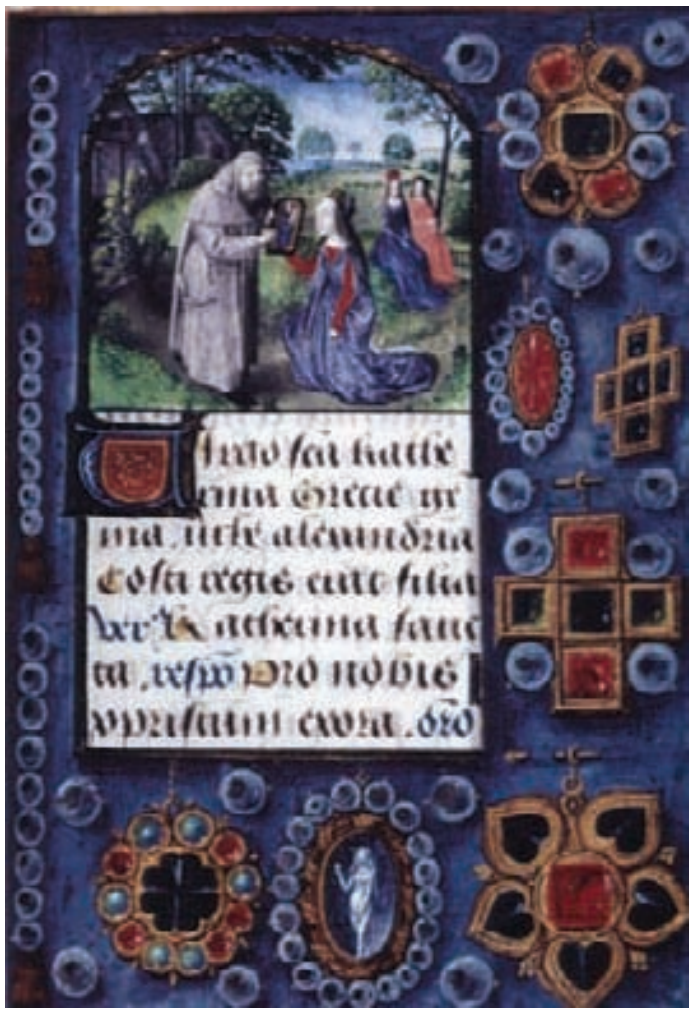 Virgo scā kathe
rina Grecie ge
ma. urbe alexandria
Costi regis erat filia
Ver' Katherina sanc
ta. respō Pro nobis
xpristum exora. orō